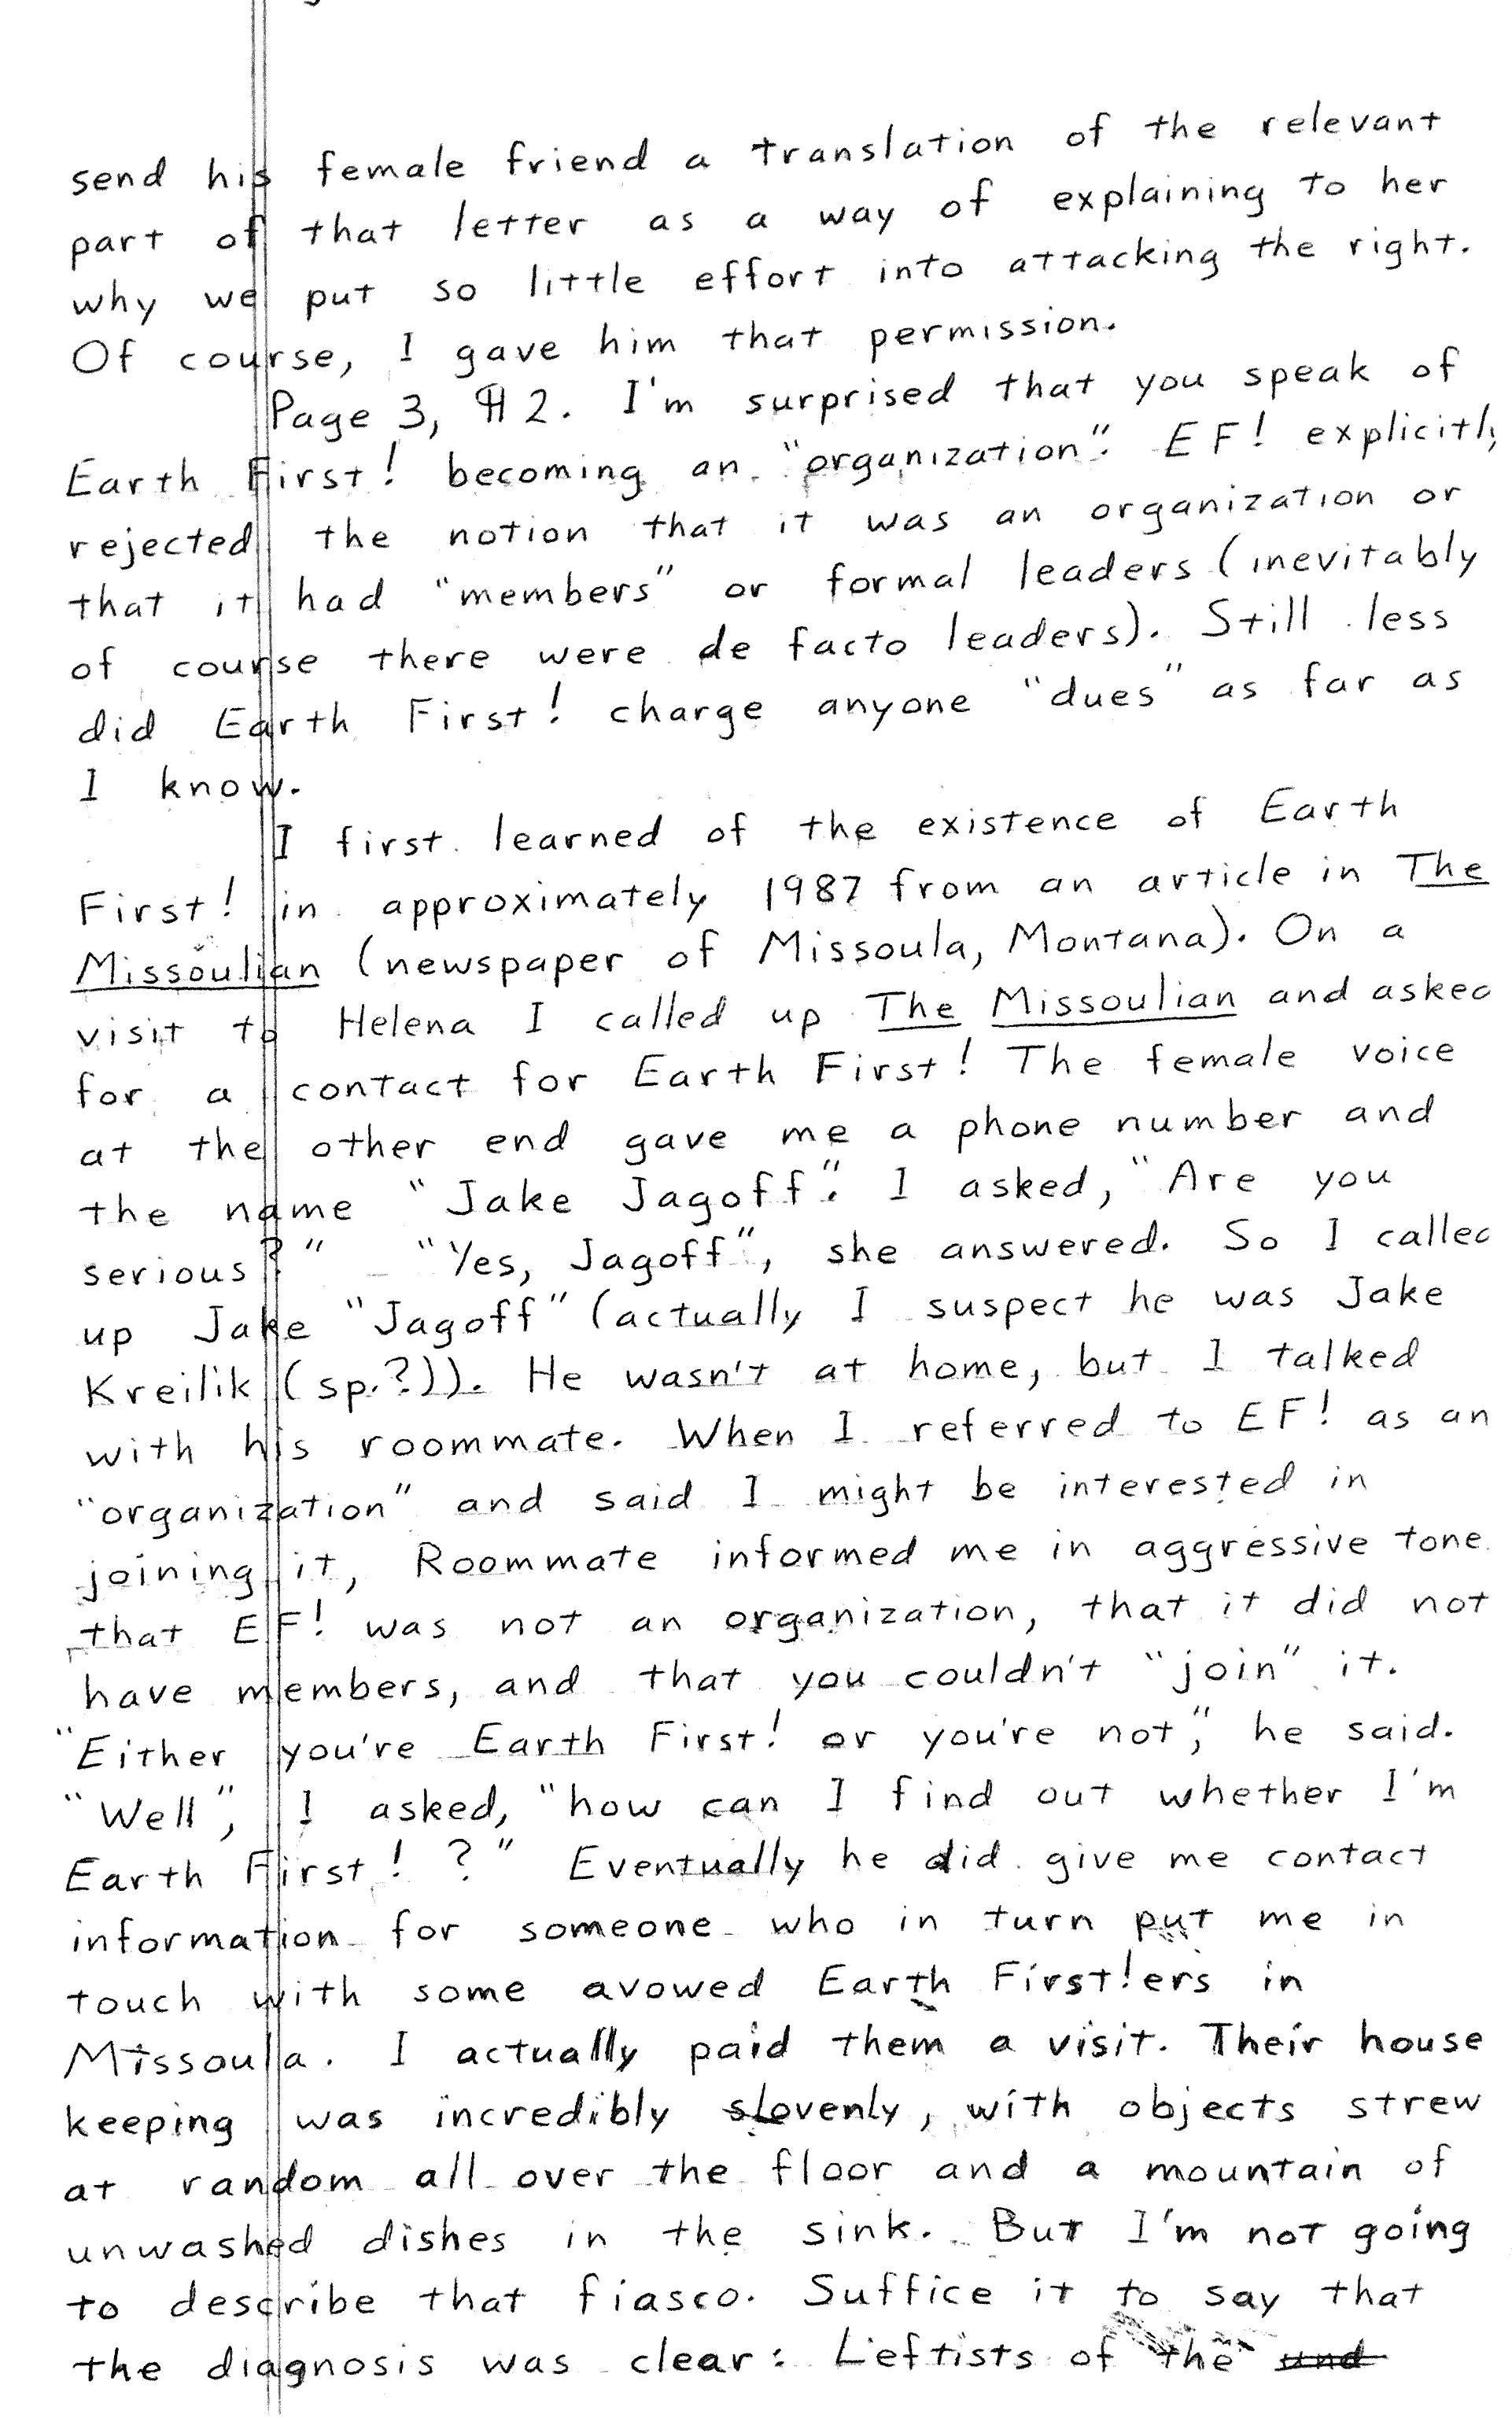 send his female friend a translation of the relevant
part of that letter as a way of explaining to her
why we put so little effort into attacking the right.
Of course, I gave him that permission.
Page 3, ¶ 2. I'm surprised that you speak of
Earth First! becoming an "organization". EF! explicitly
rejected the notion that it was an organization or
that it had "members" or formal leaders (inevitably
of course there were de facto leaders). Still less
did Earth First! charge anyone "dues" as far as
I know.
I first learned of the existence of Earth
First! in approximately 1987 from an article in The
Missoulian (newspaper of Missoula, Montana). On a
visit to Helena I called up The Missoulian and asked
for a contact for Earth First! The female voice
at the other end gave me a phone number and
the name "Jake Jagoff". I asked, "Are you
serious?" "Yes, Jagoff", she answered. So I called
up Jake "Jagoff" (actually I suspect he was Jake
Kreilik (sp.?)). He wasn't at home, but I talked
with his roommate. When I referred to EF! as an
"organization" and said I might be interested in
joining it, Roommate informed me in aggressive tone
that EF! was not an organization, that it did not
have members, and that you couldn't "join" it.
"Either you're Earth First! or you're not," he said.
"Well", I asked, "how can I find out whether I'm
Earth First! ?" Eventually he did give me contact
information for someone who in turn put me in
touch with some avowed Earth First!ers in
Missoula. I actually paid them a visit. Their house
keeping was incredibly slovenly, with objects strew
at random all over the floor and a mountain of
unwashed dishes in the sink. But I'm not going
to describe that fiasco. Suffice it to say that
the diagnosis was clear: Leftists of the und